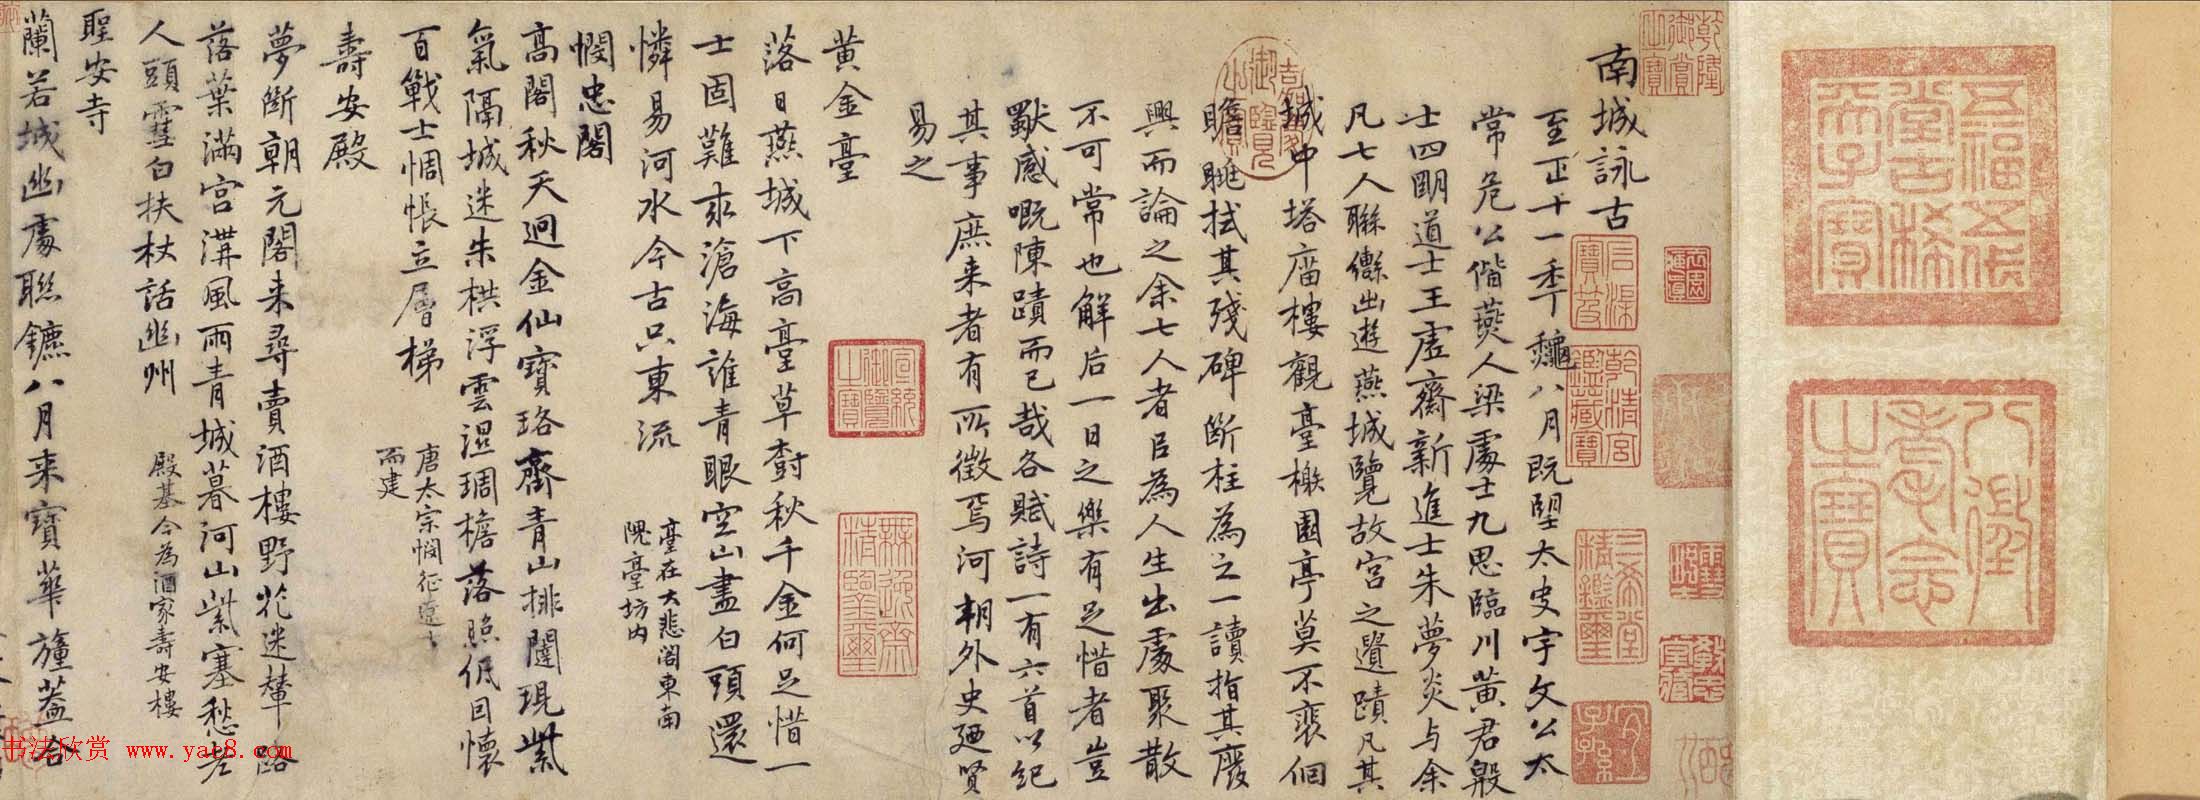 南城詠古
至正十一季龝八月既望太史宇文公太
常危公偕燕人梁處士九思臨川黄君殷
士四明道士王虚齋新進士朱夢炎与余
凡七人聯轡出遊燕城覽故宫之遺蹟凡其
城中塔廟樓觀臺榭園亭莫不裵佪
瞻眺拭其殘碑斷柱為之一讀指其廢
興而論之余七人者以為人生出處聚散
不可常也解后一日之樂有足惜者豈
獸感嘅陳蹟而已哉各賦詩一有六首以紀
其事庶来者有所徵焉河朔外史廼賢
易之
黄金臺
落日燕城下高臺草樹秋千金何足惜一
士固難求滄海誰青眼空山盡白頭還
憐易河水今古只東流
臺在大悲閣東南
隗臺坊内
憫忠閣
高閣秋天迥金仙寶珞齊青山排闥現紫
氣隔城迷朱栱浮雲濕琱檐落照低回懷
百戰士惆悵立層梯
唐太宗憫征遼士
而建
壽安殿
夢斷朝元閣来尋賣酒樓野花迷輦路
落葉滿宫溝風雨青城暮河山紫塞愁老
人頭雪白扶杖話幽州
殿基今為酒家壽安樓
聖安寺
蘭若城幽處聯鑣八月来寶華旛蓋合
乾隆御賞之寶
嘉慶御覽之寶
宣統御覽之寶
無逸齋精鑒璽
石渠寶笈
乾清宫鑑藏寶
三希堂精鑑璽
宜子孫
五福五代堂古稀天子寶
八徵耄念之寶
书法欣赏 www.yac8.com